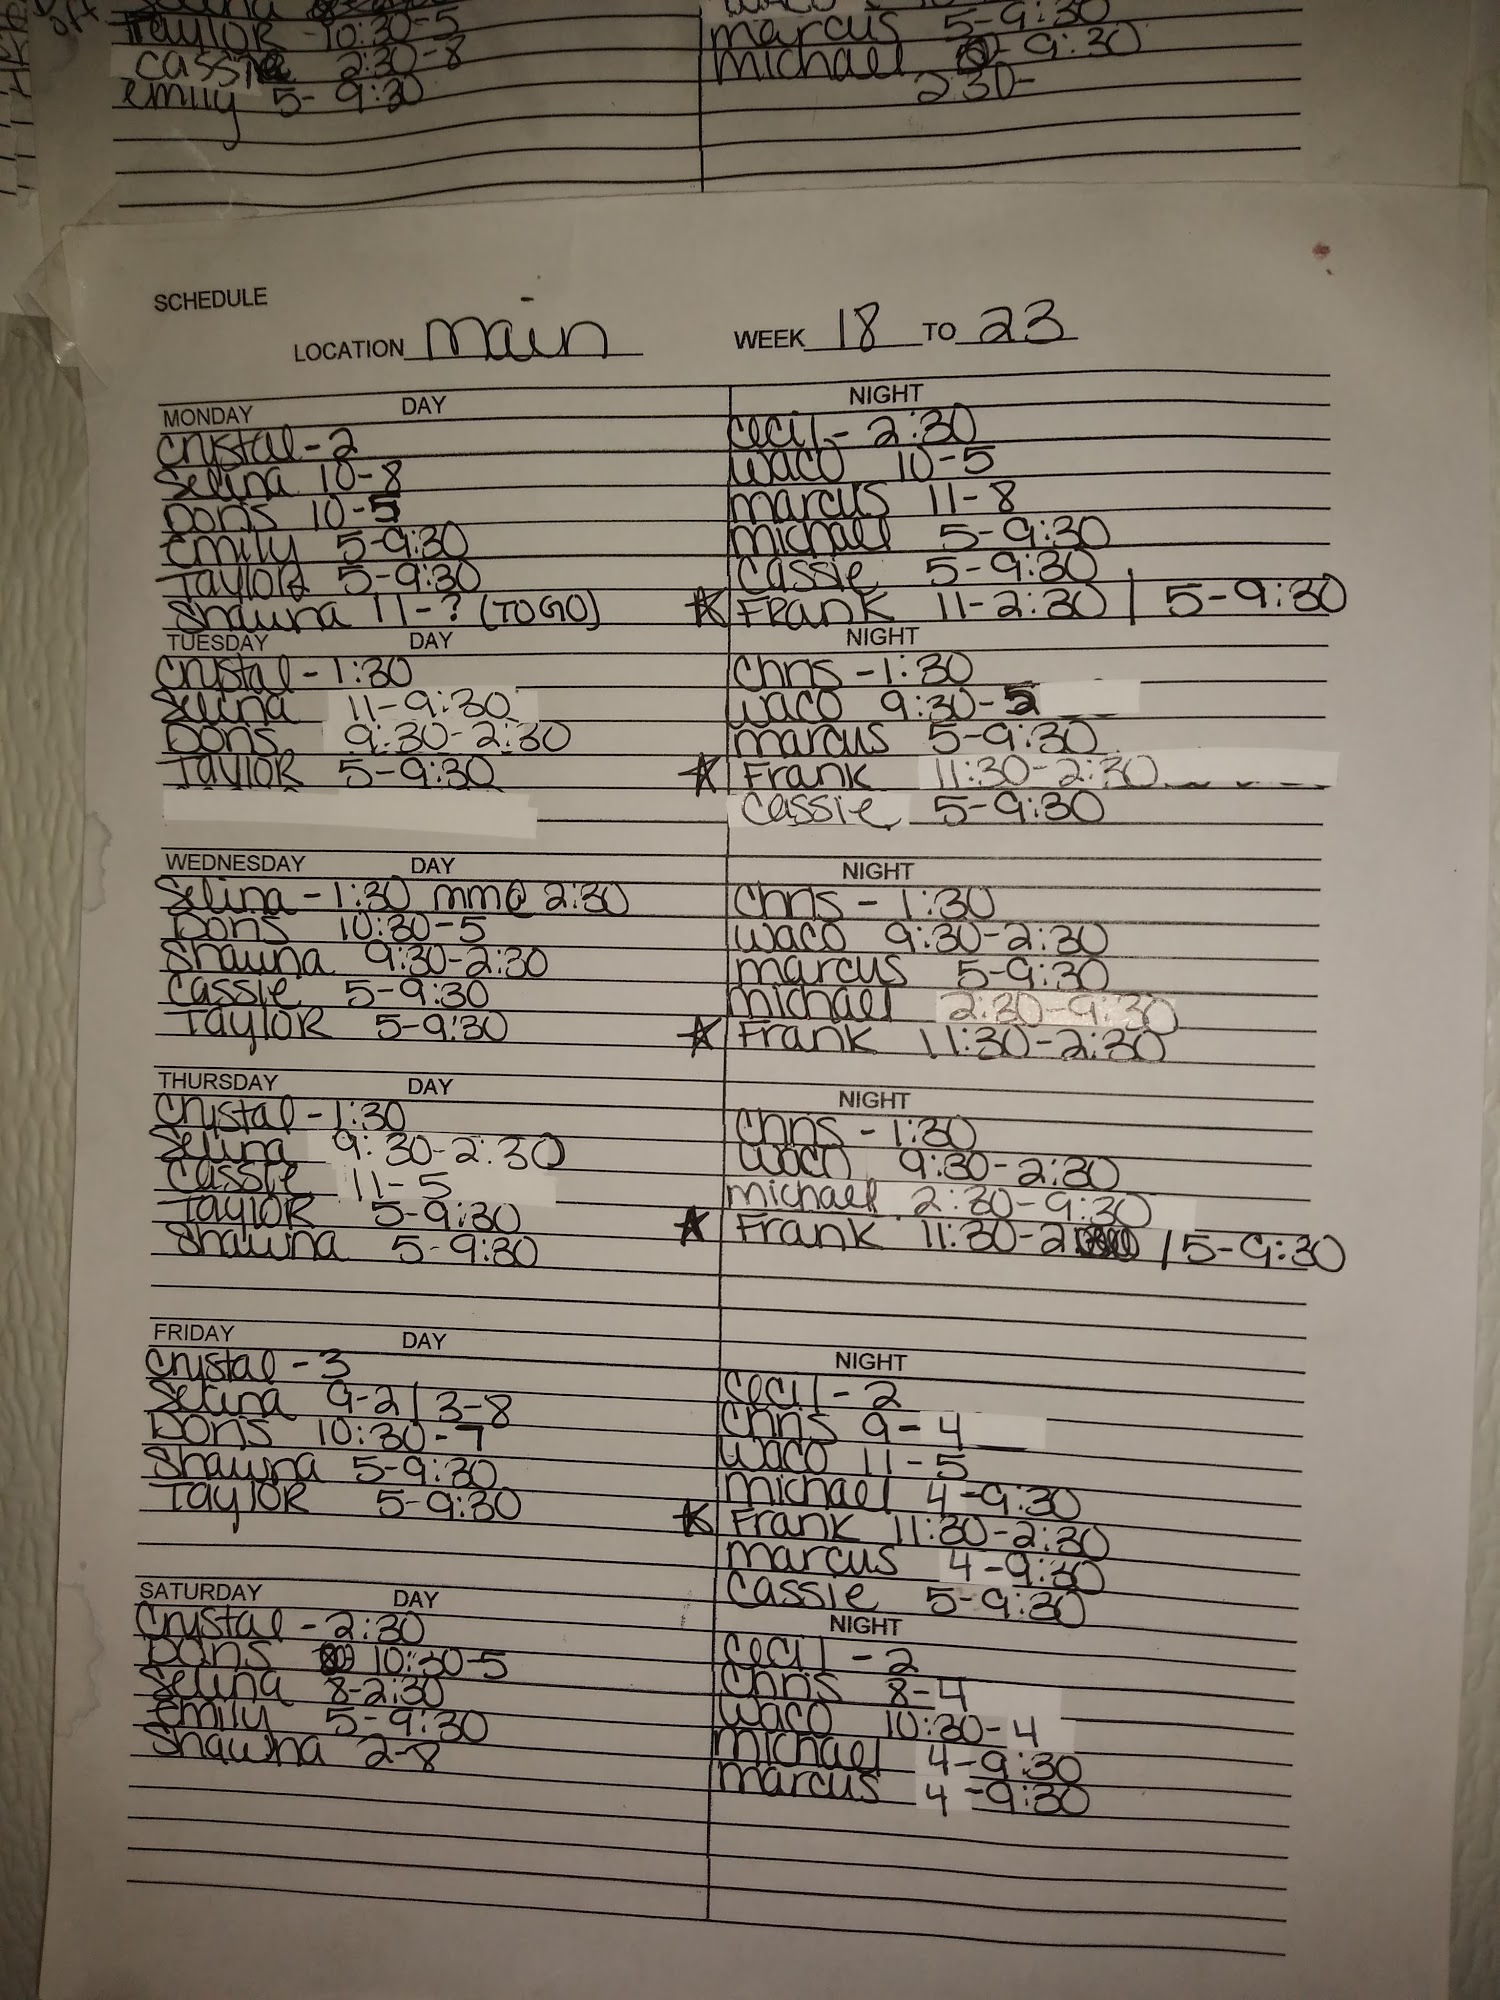 off
TAYLOR 10:30-5
cassie 2:30-8
emily 5-9:30
marcus 5-9:30
michael 9:30
2:30-
SCHEDULE
LOCATION main WEEK 18 TO 23
MONDAY DAY
crystal - 2
Selina 10-8
Doris 10-5
Emily 5-9:30
TAYLOR 5-9:30
Shawna 11-? (TO GO)
NIGHT
cecil - 2:30
waco 10-5
marcus 11-8
michael 5-9:30
cassie 5-9:30
☆ FRANK 11-2:30 | 5-9:30
TUESDAY DAY
crystal - 1:30
Selina 11-9:30
Doris 9:30-2:30
TAYLOR 5-9:30
NIGHT
Chris - 1:30
waco 9:30-5
marcus 5-9:30
☆ Frank 11:30-2:30
cassie 5-9:30
WEDNESDAY DAY
Selina - 1:30 mm@ 2:30
Doris 10:30-5
Shawna 9:30-2:30
cassie 5-9:30
TAYLOR 5-9:30
NIGHT
Chris - 1:30
waco 9:30-2:30
marcus 5-9:30
michael 2:30-9:30
☆ Frank 11:30-2:30
THURSDAY DAY
crystal - 1:30
Selina 9:30-2:30
cassie 11-5
TAYLOR 5-9:30
Shawna 5-9:30
NIGHT
Chris - 1:30
waco 9:30-2:30
michael 2:30-9:30
☆ Frank 11:30-2 | 5-9:30
FRIDAY DAY
crystal - 3
Selina 9-2 | 3-8
Doris 10:30-7
Shawna 5-9:30
TAYLOR 5-9:30
NIGHT
cecil - 2
Chris 9-4
waco 11-5
michael 4-9:30
☆ Frank 11:30-2:30
marcus 4-9:30
cassie 5-9:30
SATURDAY DAY
crystal - 2:30
Doris 10:30-5
Selina 8-2:30
Emily 5-9:30
Shawna 2-8
NIGHT
cecil - 2
Chris 8-4
waco 10:30-4
michael 4-9:30
marcus 4-9:30